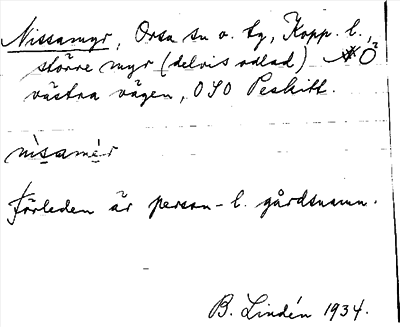 Nissamyr, Orsa sn o. tg, Kopp. l.,
större myr (delvis odlad) Ö
västra vägen, OSO Peskitt.
nìsamér
Förleden är person- l. gårdsnamn.
B. Lindén 1934.